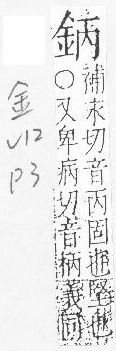 鈵
補末切音丙固也堅也
○又卑病切音柄義同
金
V12
P3